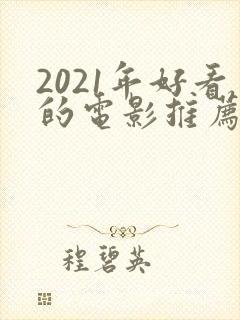 2021年好看
的電影推薦
程碧英